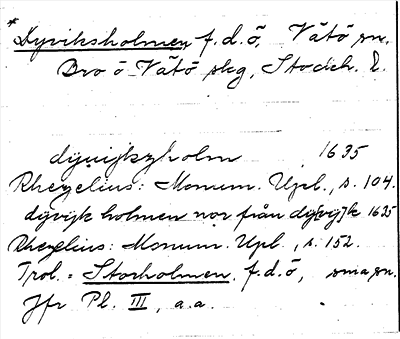 * Dyviksholmen, f.d. ö, Vätö sn.
Bro o Vätö skg, Stockh. l.
dÿuijkzholm 1635
Rhezelius: Monum. Upl., s. 104.
dÿvijk holmen nor från dÿ[vij]k 1635
Rhezelius: Monum. Upl., s. 152.
Trol. = Storholmen, f.d. ö, sma sn.
Jfr Pl. III, a.a.